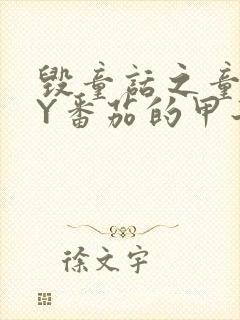 毁童话之童
Y番茄的甲
徐文宇